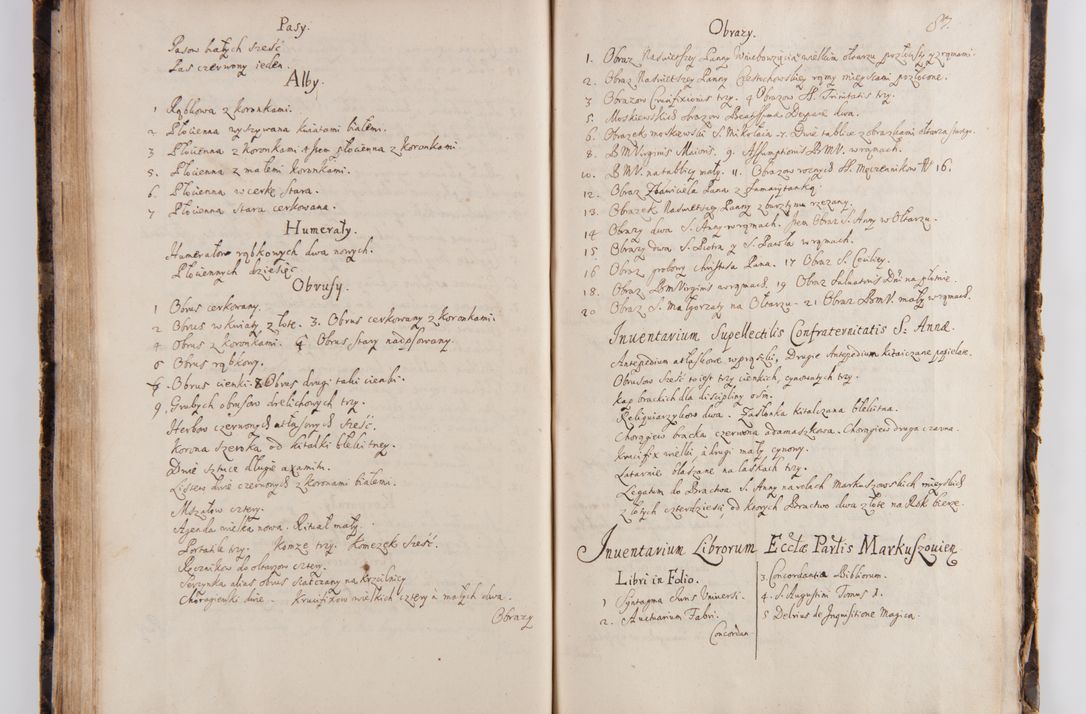 Pasy.
Pasow białych sześć
Pas czerwony ieden.
Alby.
1 Rąbkowa z koronkami.
2 Płocienna wyszywana kwiatami białemi.
3 Płocienna z koronkami 4 Item płocienna z koronkami
5. Płocienna z małemi koronkami.
6. Płocienna w cerkę stara.
7 Płocienna stara cerkowana.
Humerały.
Humerałow rąbkowych dwa nowych.
Płociennych dziesięć
Obrusy.
1 Obrus cerkowany.
2 Obrus w kwiaty złote. 3. Obrus cerkowany z koronkami.
4 Obrus z koronkami. 5 Obrus stary nadpsowany.
6 Obrus rąbkowy.
7. Obrus cienki. 8 Obrus drugi taki cienki.
9. Grubych obrusow drelichowych trzy.
Herbow czerwonych atłasowych sześć.
Korona szeroka od kitaiki błękitney.
Dwie sztuce długie axamitu.
Listew dwie czerwonych z koronami białemi.
Mszałow cztery.
Agenda wielka nowa. Rituał mały.
Portatile trzy. Komze trzy. Komeżek sześć.
Ręcznikow do ołtarzow cztery.
Serzynka alias obrus siatczany na krzcilnicy
Chorągiewki dwie. Krucifixow wielkich cztery a małych dwa.
Obrazy
87.
Obrazy.
1. Obraz Naświetszey Panny Wniebowzięcia w wielkim ołtarzu pozłocisty z ramami.
2. Obraz Naświetszey Panny Częstochowskiey ramy mieyscami pozłocone.
3 Obrazow Crucifixionis trzy. 4 Obrazow SS. Trinitatis trzy.
5. Moskiewskich obrazow Beatissimæ Deiparæ dwa.
6. Obrazek moskiewski S. Mikołaia 7. Dwie tablice z obrazkami ołtarza starego.
8. B. M. Virginis Maioris. 9. Assumptionis B. M. V. w ramach.
10. B M V. na tablicy mały. 11. Obrazow roznych SS. Męczennikow N 16.
12. Obraz Zbawiciela Pana z Samarytanką.
13. Obrazek Naświetszey Panny z bursztynu rzezany.
14 Obrazy dwa S. Anny w ramach. Item Obraz S. Anny w Ołtarzu.
15 Obrazy dwa S. Piotra y S. Pawła w ramach.
16 Obraz probowy Chrystusa Pana. 17 Obraz S. Ceciliey.
18. Obraz B M Virginis w ramach. 19 Obraz Salvatoris Dni na płótnie.
20 Obraz S. Małgorzaty na Ołtarzu. 21 Obraz B. M V. mały w ramach.
Inventarium Supellectilis Confraternitatis S: Annæ.
Antepedium atłaskowe w prążki, Drugie Antepedium kitaiczane popielate.
Obrusow sześć to iest trzy cienkich, cynowatych trzy.
Kap brackich dla discipliny ośm.
Reliquiarzykow dwa. Zasłonka kitaiczana błękitna.
Chorągiew bracka czerwona adamaszkowa. Chorągiew druga czarna.
Krucifix wielki, a drugi mały cynowy.
Latarnie blaszane na laskach trzy.
Legatum do Bractwa S. Anny na rolach Markuszowskich mieyskich
złotych czterdzieści, od ktorych Bractwo dwa złote na Rok bierze.
Inventarium Librorum Ecclæ Parlis Markuszovien.
Libri in Folio.
1 Syntagma Iuris Universi.
2. Auctuarium Fabri.
Concordan
3. Concordantiæ Bibliorum.
4. S. Augustini Tomus 1.
5 Delrius de Inquisitione Magica.